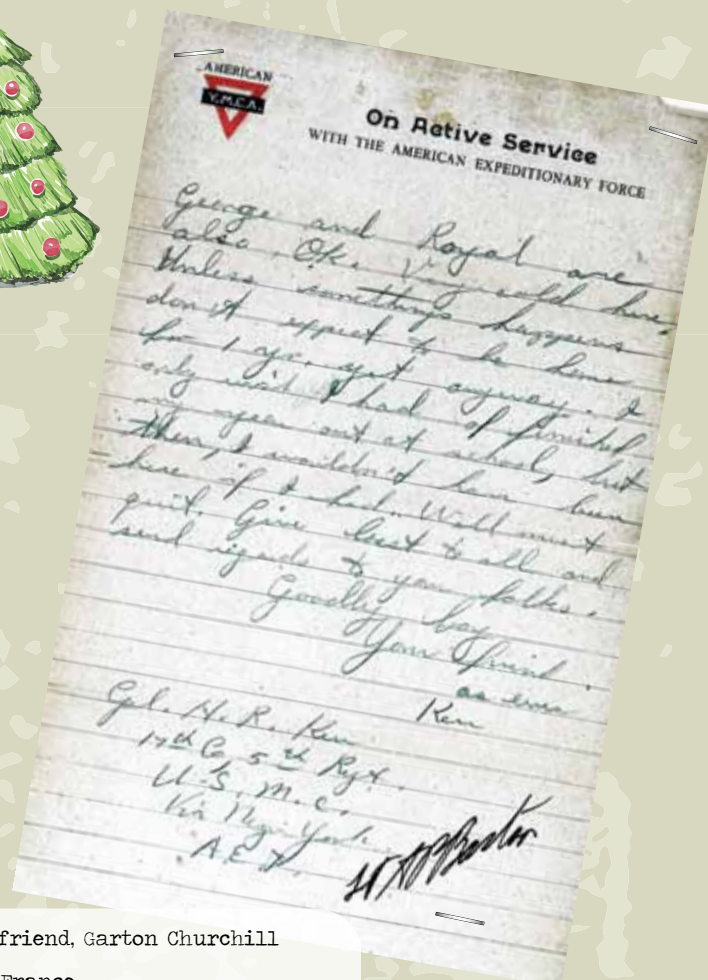 AMERICAN
Y.M.C.A.
On Active Service
WITH THE AMERICAN EXPEDITIONARY FORCE
George and Royal are
also OK. Very cold here,
Unless somethings happens
don't expect to be home
for 1 yr. yet anyway. I
only wish I had of finished
my year out at school, but
then, I wouldn't have been
here if I had. Well must
quit. Give best to all and
send regards to your folks.
Goodby boy
Your friend
as ever
Ken
Cpl. H. R. Ken
17th Co, 5th Rgt.
U.S.M.C.
Via New York.
A.E.F.
friend, Garton Churchill
France